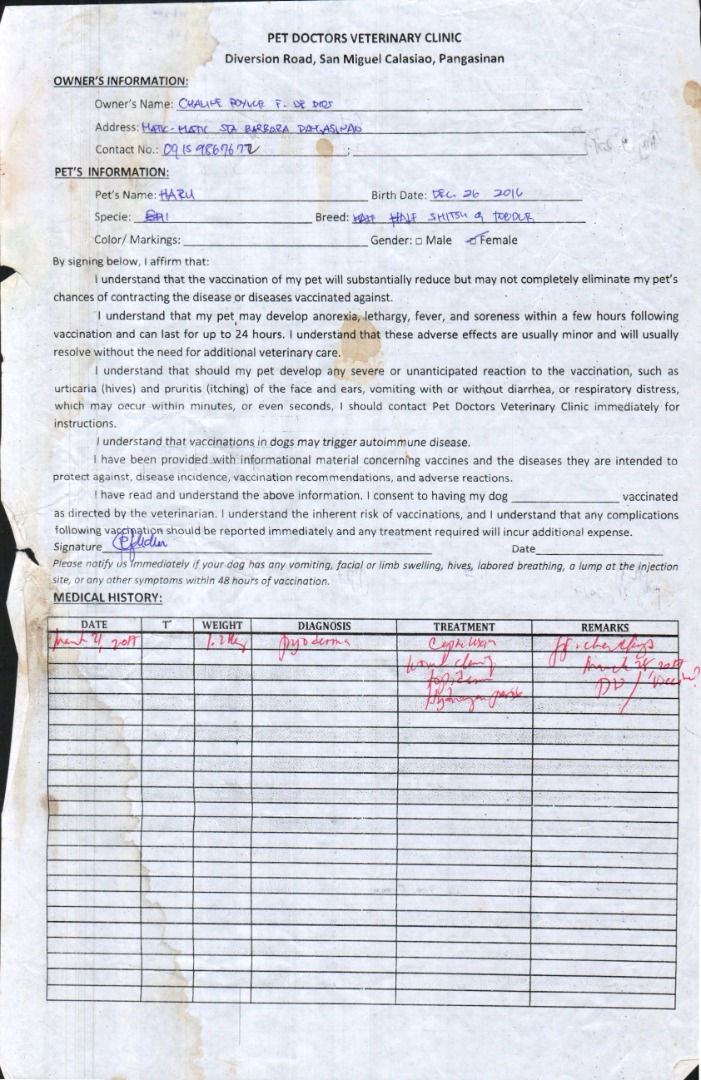 PET DOCTORS VETERINARY CLINIC
Diversion Road, San Miguel Calasiao, Pangasinan
OWNER'S INFORMATION:
Owner's Name: F. DE DIOS
Address: MATIC-MATIC STA BARBARA PANGASINAN
Contact No.: 09159867672 ;
PET'S INFORMATION:
Pet's Name: HARU Birth Date: DEC. 26 2016
Specie: Breed: HALF SHITSU & POODLE
Color/ Markings: Gender: □ Male ☑ Female
By signing below, I affirm that:
I understand that the vaccination of my pet will substantially reduce but may not completely eliminate my pet's
chances of contracting the disease or diseases vaccinated against.
I understand that my pet may develop anorexia, lethargy, fever, and soreness within a few hours following
vaccination and can last for up to 24 hours. I understand that these adverse effects are usually minor and will usually
resolve without the need for additional veterinary care.
I understand that should my pet develop any severe or unanticipated reaction to the vaccination, such as
urticaria (hives) and pruritis (itching) of the face and ears, vomiting with or without diarrhea, or respiratory distress,
which may occur within minutes, or even seconds, I should contact Pet Doctors Veterinary Clinic immediately for
instructions.
I understand that vaccinations in dogs may trigger autoimmune disease.
I have been provided with informational material concerning vaccines and the diseases they are intended to
protect against, disease incidence, vaccination recommendations, and adverse reactions.
I have read and understand the above information. I consent to having my dog ____ vaccinated
as directed by the veterinarian. I understand the inherent risk of vaccinations, and I understand that any complications
following vaccination should be reported immediately and any treatment required will incur additional expense.
Signature Date
Please notify us immediately if your dog has any vomiting, facial or limb swelling, hives, labored breathing, a lump at the injection
site, or any other symptoms within 48 hours of vaccination.
MEDICAL HISTORY:
DATE T° WEIGHT DIAGNOSIS TREATMENT REMARKS
March 21, 2017 1.2kg pyoderma Cephalexin
March 28 2017